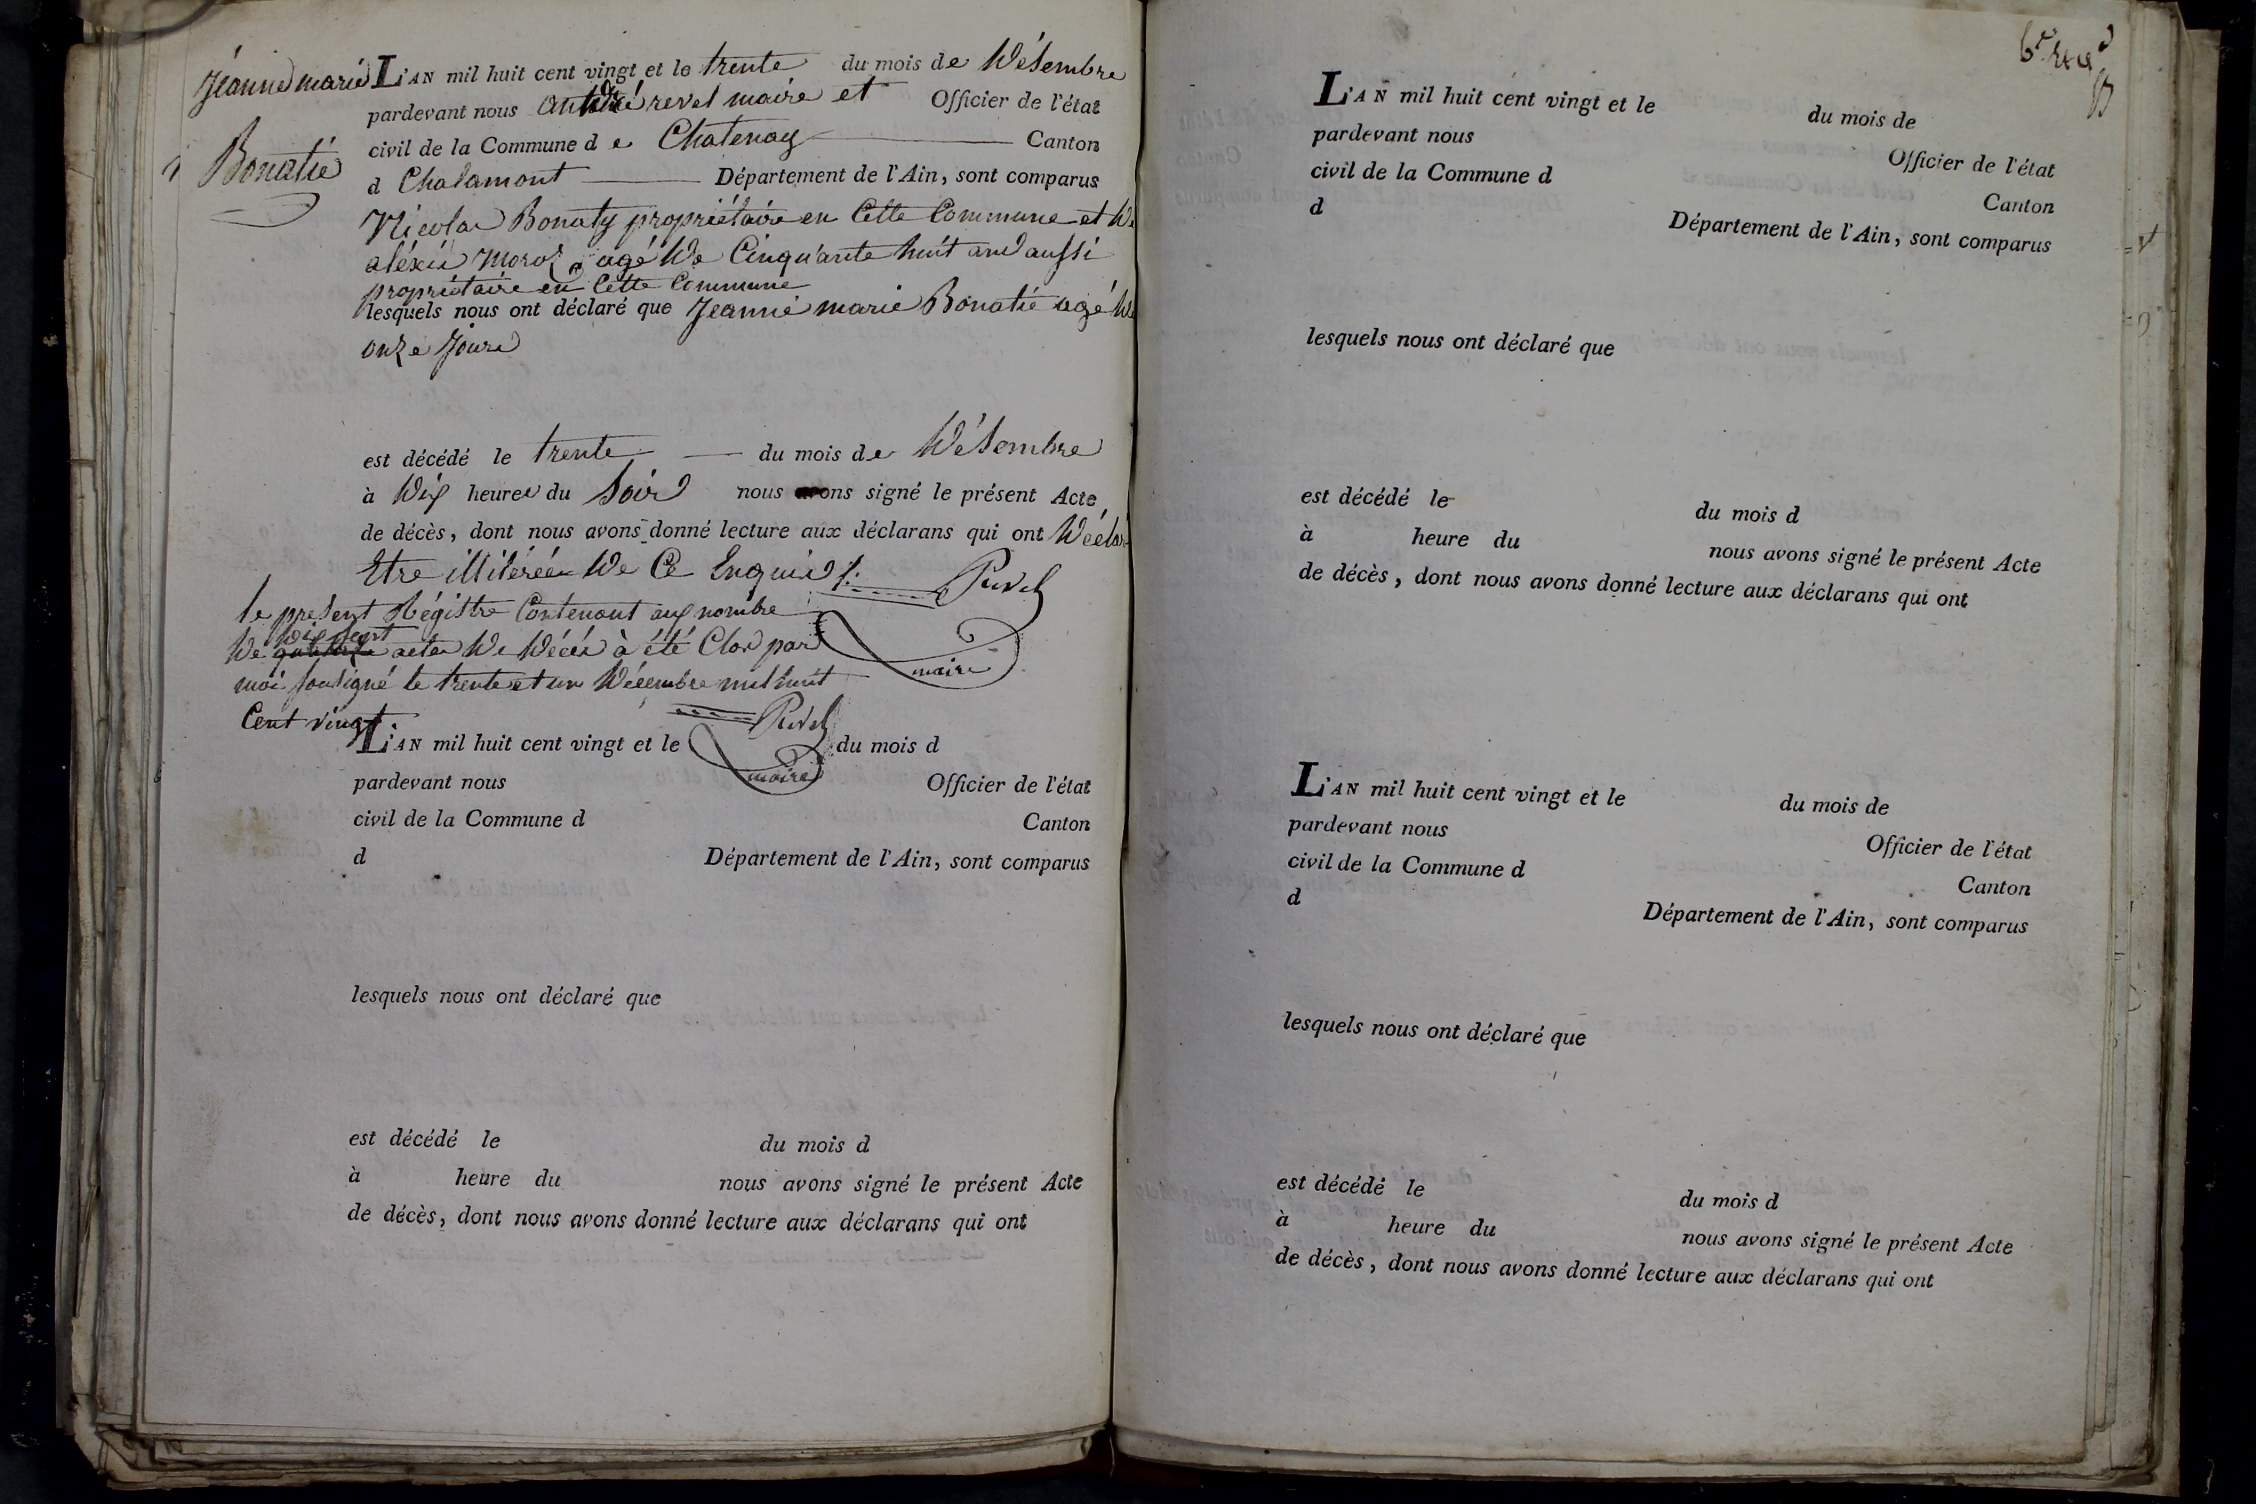 Jeanne marie
Bonatié
L'AN mil huit cent vingt et le trente du mois de Désembre
pardevant nous andré revel maire et Officier de l'état
civil de la Commune de Chatenay Canton
d Chalamont Département de l'Ain, sont comparus
Nicolas Bonaty propriétaire en Cette Commune et de
aléxis morel agé de Cinquante huit ans aussi
propriétaire en Cette Commune
lesquels nous ont déclaré que Jeanne marie Bonatié agé de
onze Jours
est décédé le trente du mois de Désembre
à dix heures du Soir nous avons signé le présent Acte
de décès, dont nous avons donné lecture aux déclarans qui ont déclaré
Etre illiterée de Ce Enquis Revel
maire
le present Régistre Contenant aux nombre
dix sept
de actes de décés à été Clos par
moi soussigné le trente et un Décembre mil huit
Cent vingt. Revel
maire
L'AN mil huit cent vingt et le du mois d
pardevant nous Officier de l'état
civil de la Commune d Canton
d Département de l'Ain, sont comparus
lesquels nous ont déclaré que
est décédé le du mois d
à heure du nous avons signé le présent Acte
de décès, dont nous avons donné lecture aux déclarans qui ont
L'AN mil huit cent vingt et le du mois de
pardevant nous Officier de l'état
civil de la Commune d Canton
d Département de l'Ain, sont comparus
lesquels nous ont déclaré que
est décédé le du mois d
à heure du nous avons signé le présent Acte
de décès, dont nous avons donné lecture aux déclarans qui ont
L'AN mil huit cent vingt et le du mois de
pardevant nous Officier de l'état
civil de la Commune d Canton
d Département de l'Ain, sont comparus
lesquels nous ont déclaré que
est décédé le du mois d
à heure du nous avons signé le présent Acte
de décès, dont nous avons donné lecture aux déclarans qui ont